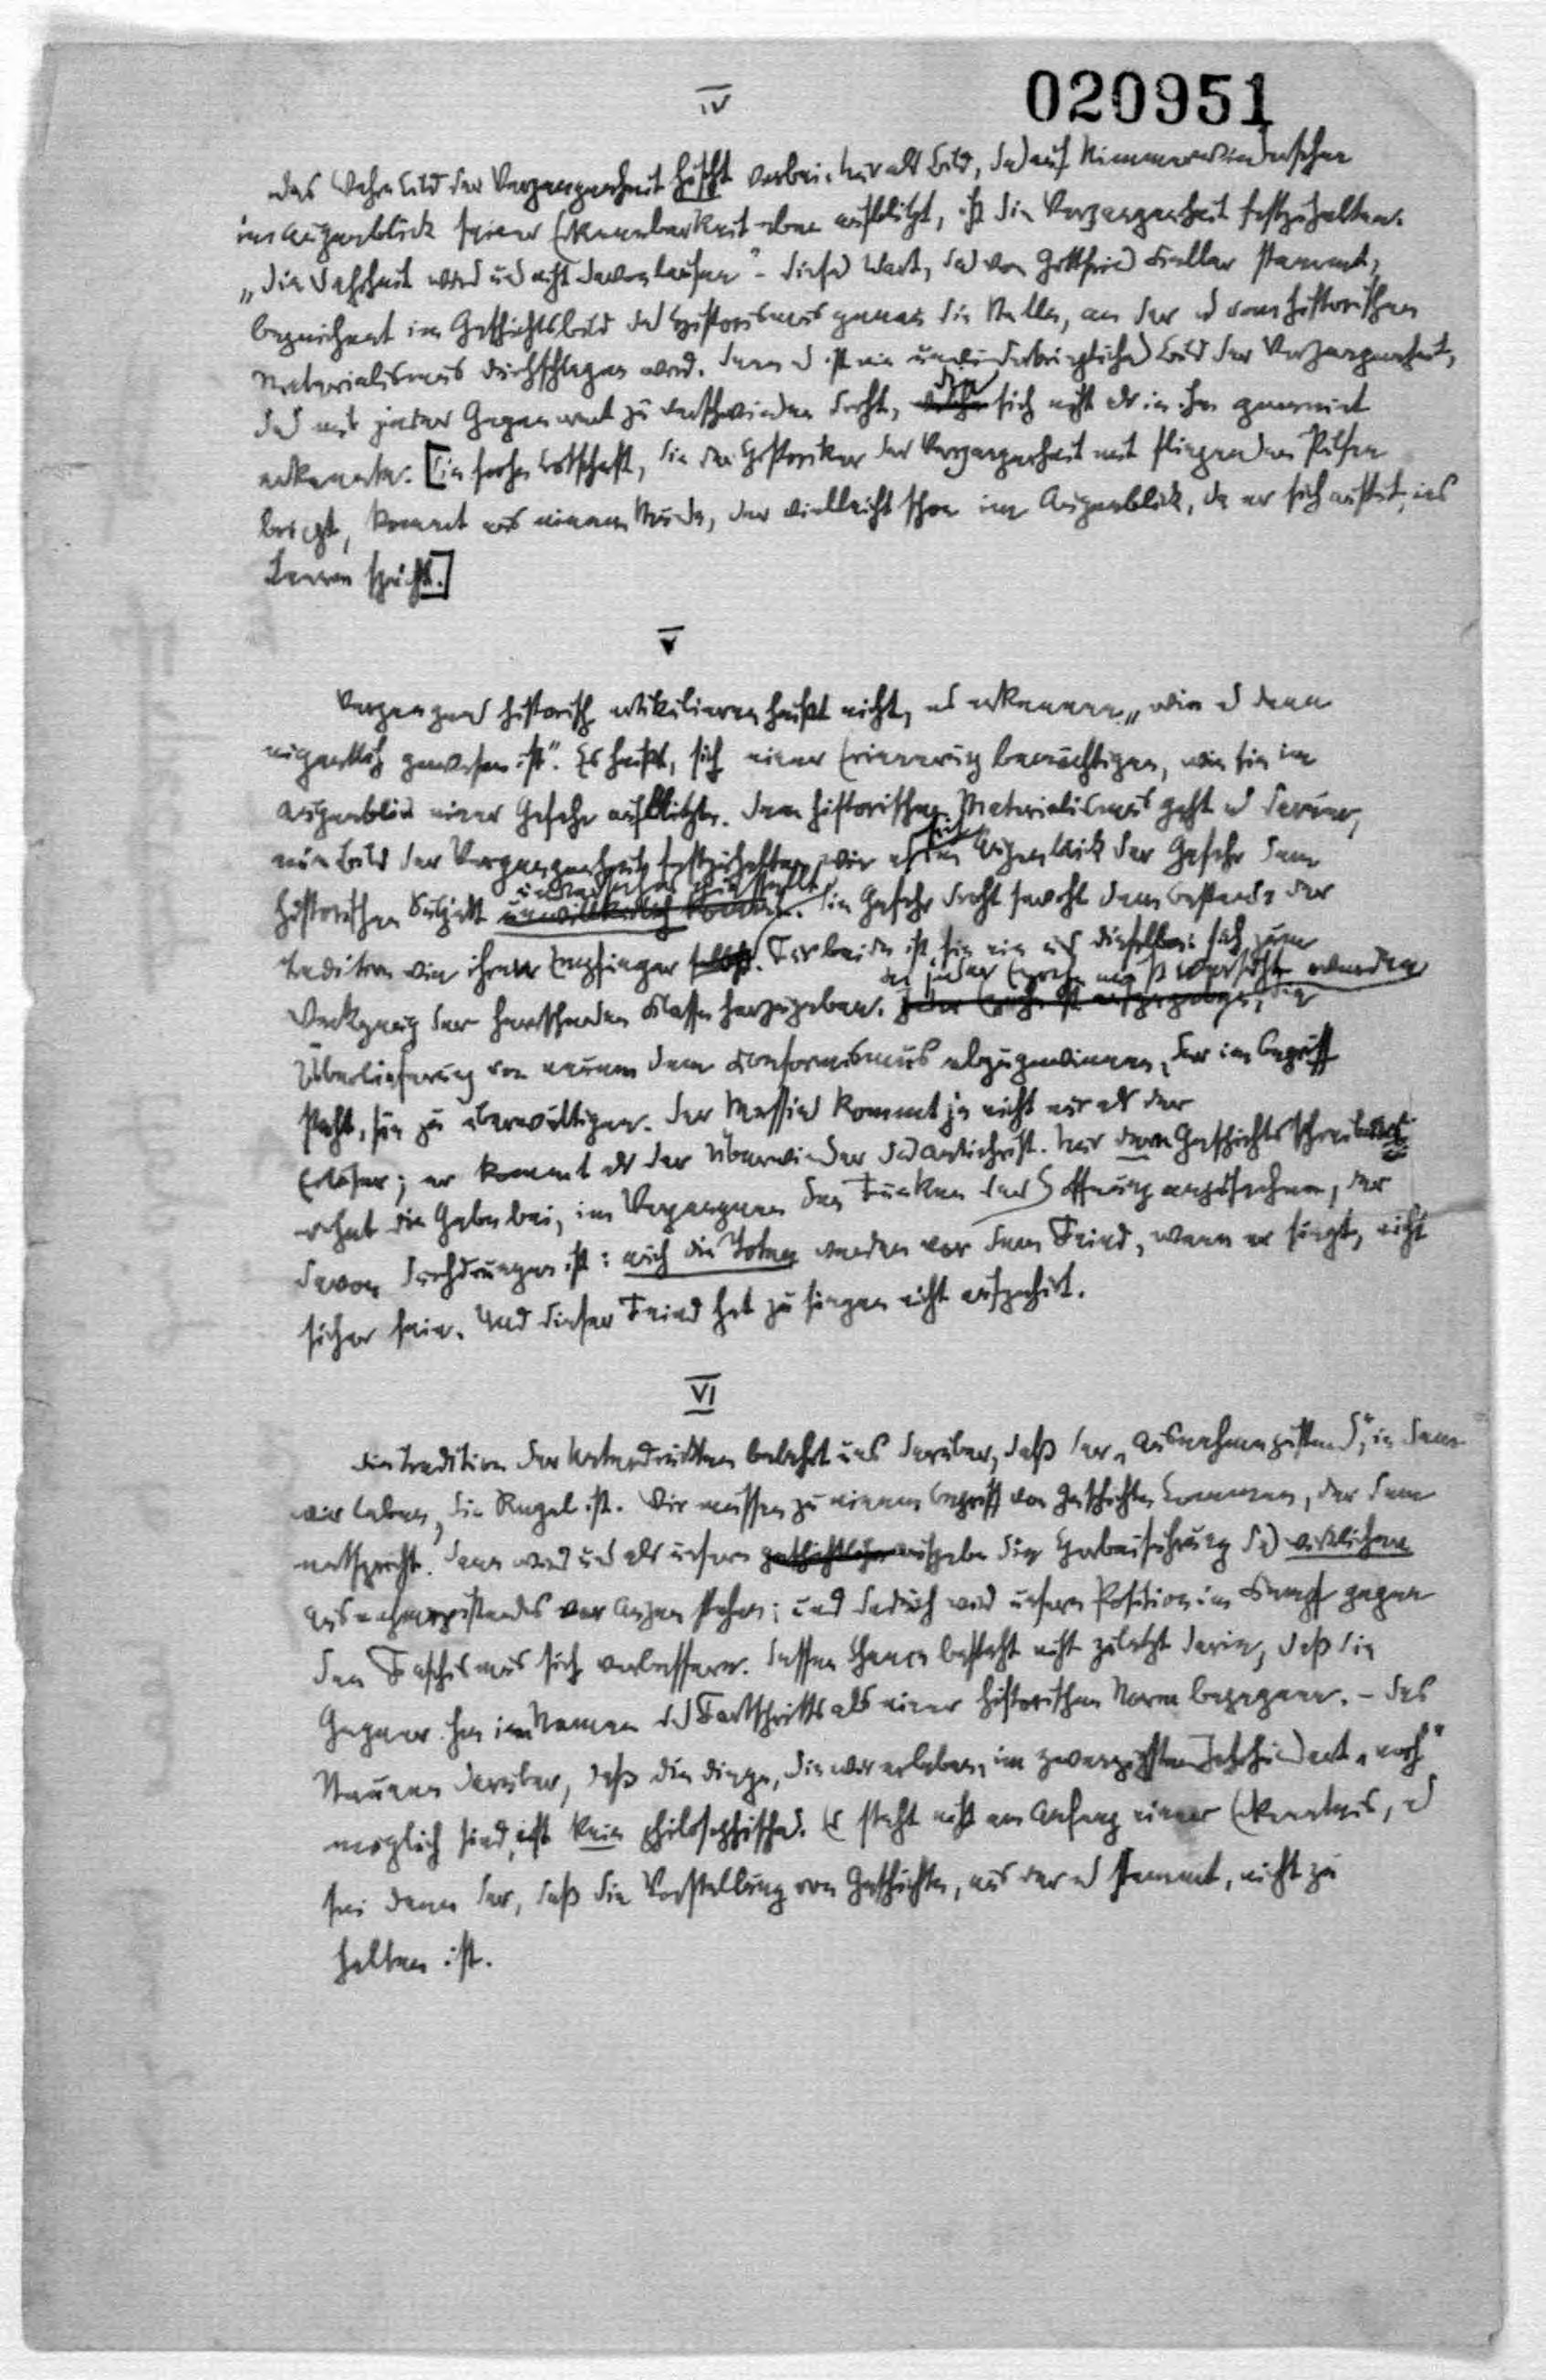 IV
020951
Das wahre Bild der Vergangenheit huscht vorbei. Nur als Bild, das auf Nimmerwiedersehen
im Augenblick seiner Erkennbarkeit eben aufblitzt, ist die Vergangenheit festzuhalten.
„Die Wahrheit wird uns nicht davonlaufen" – dieses Wort, das von Gottfried Keller stammt,
bezeichnet im Geschichtsbild des Historismus genau die Stelle, an der es vom historischen
Materialismus durchschlagen wird. Denn es ist ein unwiederbringliches Bild der Vergangenheit,
das mit jeder Gegenwart zu verschwinden droht, die sich nicht als in ihm gemeint
erkannte. [Die frohe Botschaft, die der Historiker der Vergangenheit mit fliegenden Pulsen
bringt, kommt aus einem Munde, der vielleicht schon im Augenblick, da er sich auftut, ins
Leere spricht.]
V
Vergangenes historisch artikulieren heißt nicht, es erkennen „wie es denn
eigentlich gewesen ist". Es heißt, sich einer Erinnerung bemächtigen, wie sie im
Augenblick einer Gefahr aufblitzt. Dem historischen Materialismus geht es darum,
ein Bild der Vergangenheit festzuhalten wie es sich im Augenblick der Gefahr dem
historischen Subjekt unversehens einstellt. unwillkürlich Die Gefahr droht sowohl dem Bestande der
Tradition wie ihren Empfänger selbst. Für beide ist sie ein und dieselbe: sich zum
Werkzeug der herrschenden Klasse herzugeben. In jeder Epoche muß versucht werden die
Überlieferung von neuem dem Konformismus abzugewinnen, der im Begriff
steht, sie zu überwältigen. Der Messias kommt ja nicht nur als der
Erlöser; er kommt als der Überwinder des Antichrist. Nur dem Geschichtsschreiber
wohnt die Gabe bei, im Vergangnen den Funken der Hoffnung anzufachen, der
davon durchdrungen ist: auch die Toten werden vor dem Feind, wenn er siegt, nicht
sicher sein. Und dieser Feind hat zu siegen nicht aufgehört.
VI
Die Tradition der Unterdrückten belehrt uns darüber, daß der „Ausnahmezustand", in dem
wir leben, die Regel ist. Wir müssen zu einem Begriff von Geschichte kommen, der dem
entspricht. Dann wird uns als unsere geschichtliche Aufgabe die Herbeiführung des wirklichen
Ausnahmezustandes vor Augen stehen; und dadurch wird unsere Position im Kampf gegen
den Faschismus sich verbessern. Dessen Chance besteht nicht zuletzt darin, daß die
Gegner ihm im Namen des Fortschritts als einer historischen Norm begegnen. – Das
Staunen darüber, daß die Dinge, die wir erleben, im zwanzigsten Jahrhundert „noch"
möglich sind, ist kein philosophisches. Es steht nicht am Anfang einer Erkenntnis, es
sei denn der, daß die Vorstellung von Geschichte, aus der es stammt, nicht zu
halten ist.